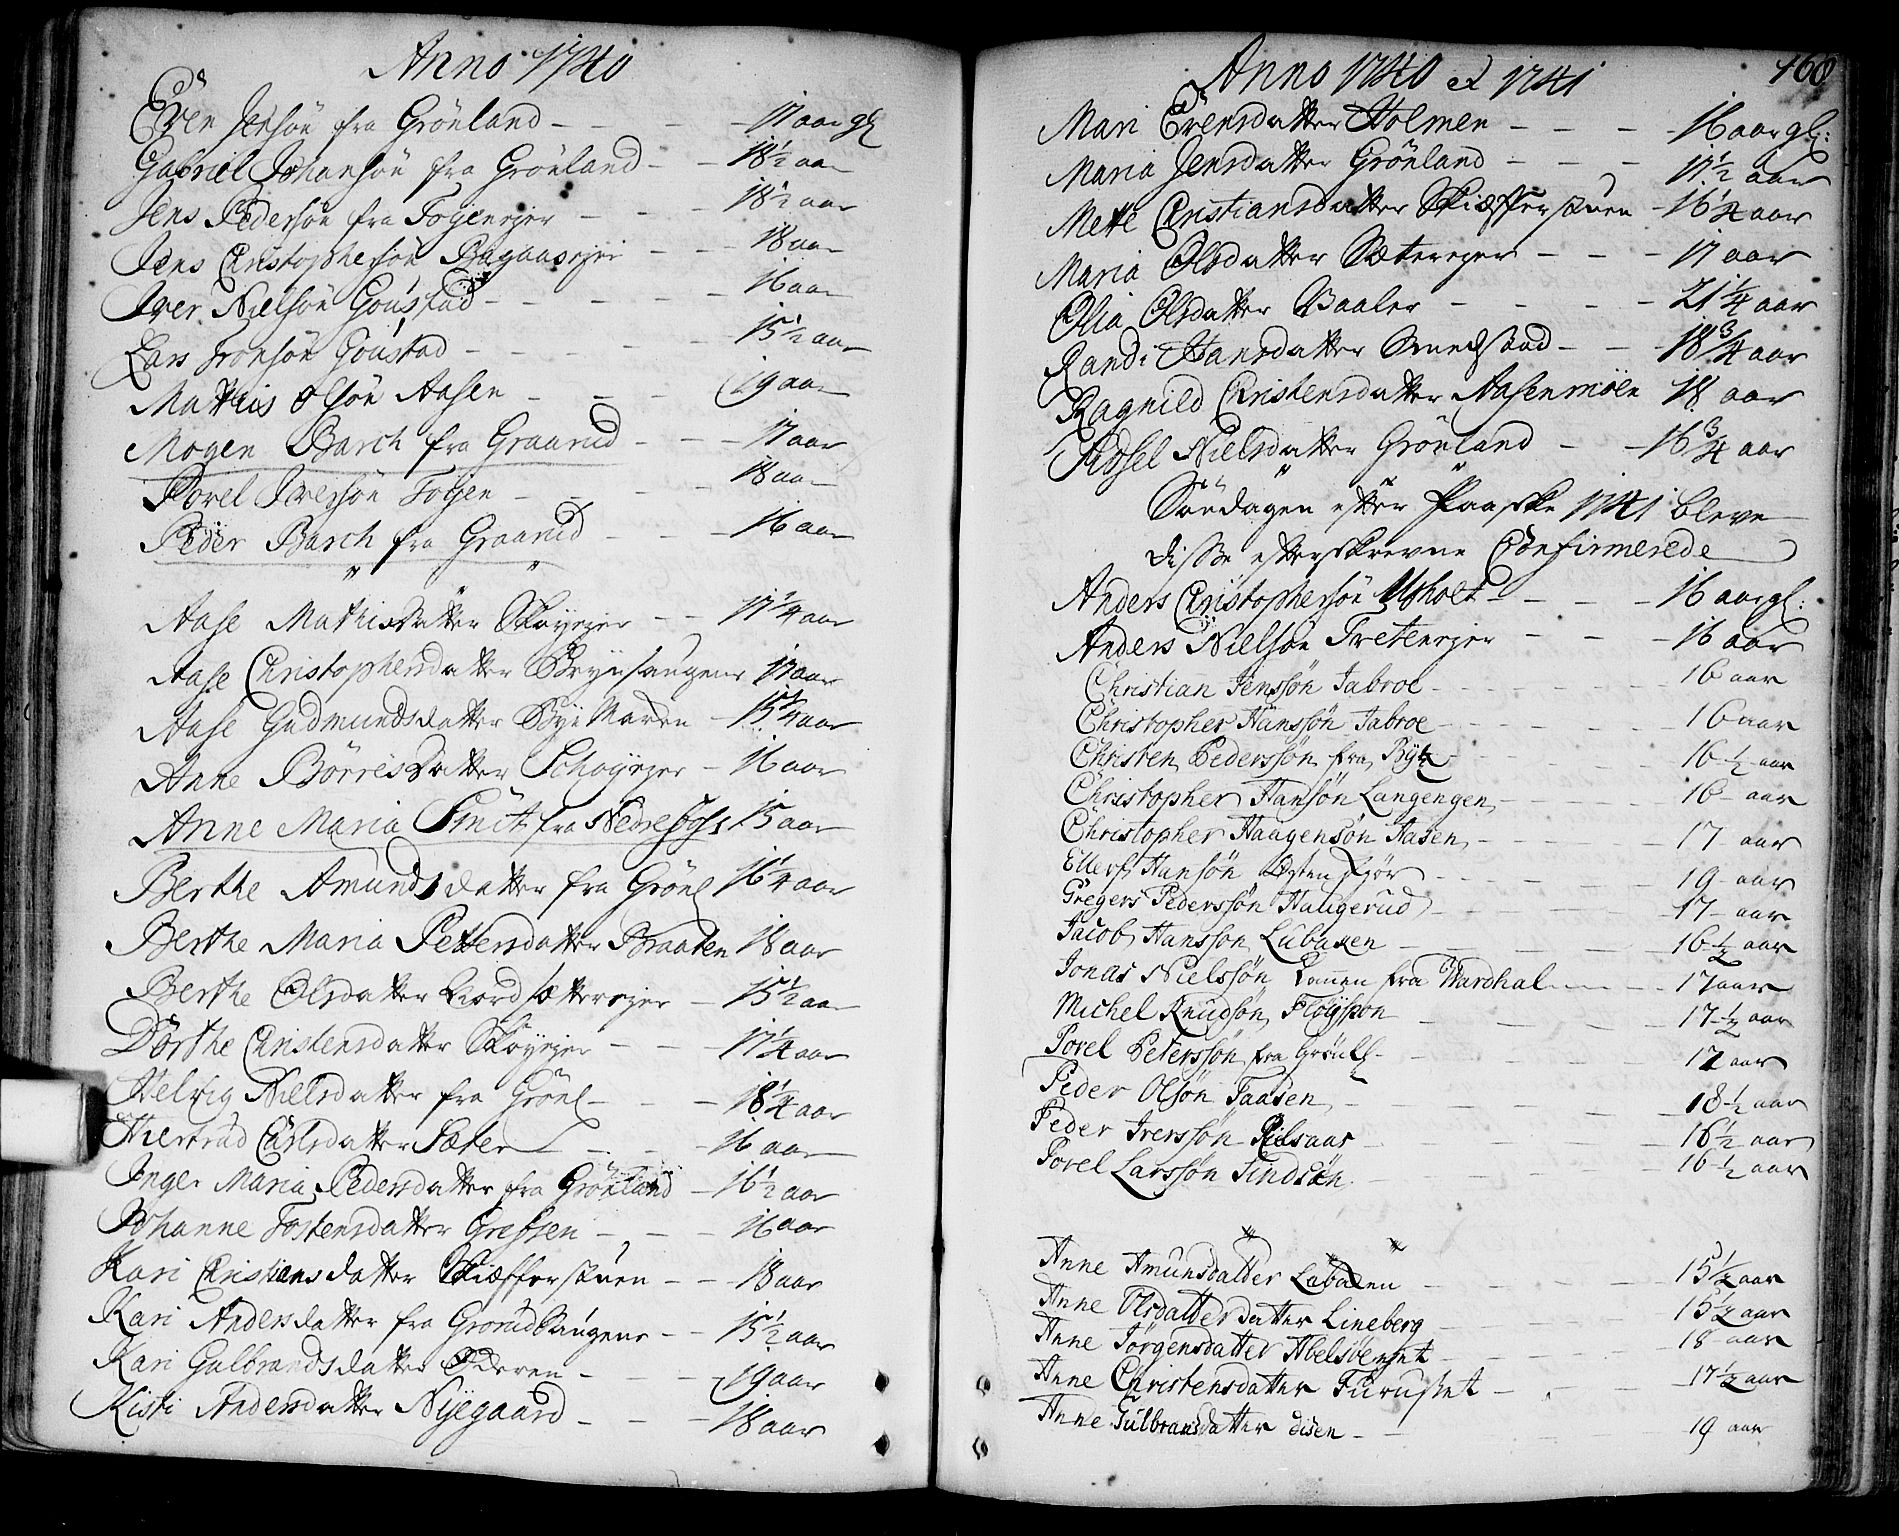 Anno 1740
Even Jensön fra Grönland - - - 17 aar gl
Gabriel Johansön fra Grönland - - 18½ aar
Jens Pedersön fra Togenejer - - - 18½ aar
Jens Christophersön - - 18 aar
Iver Nielsön Goustad - - - - 16 aar
Lars Joensön Goustad - - - - 15½ aar
Mathis Olsön Aasen - - - 19 aar
Mogen Barch fra Graarud - - - 17 aar
Povel Iversön Togen - - - 18 aar
Peder Barch fra Graarud - - - 16 aar
Aase Mathisdatter Skøyejer - - 17¼ aar
Aase Christophersdatter Brynsaugene 17 aar
Aase Gudmundsdatter - 15¼ aar
Anne Börresdatter Schøyejer - 16 aar
Anne Maria Smit fra 15 aar
Berthe Amundsdatter fra Grönl 16¼ aar
Berthe Maria Pettersdatter Braaten 18 aar
Berthe Olsdatter Nordsætterejer - 15½ aar
Dorthe Christensdatter Skøyejer - - - 17¼ aar
Helvig Nielsdatter fra Grönl - - - 18¼ aar
Hiertrud Carlsdatter Sæter - - - 16 aar
Inger Maria Pedersdatter fra Grönland - 16½ aar
Johanne Tostensdatter Grefsen - - - 16 aar
Kari Christiansdatter Skiæfferstuen - - 18 aar
Kari Andersdatter fra Grorudsaugene - - 15½ aar
Kari Gulbrandsdatter Oderen - - - 19 aar
Kisti Andersdatter Nyegaard - - - 18 aar
Anno 1740 et 1741
168
Mari Evensdatter Holmen - - - 16 aar gl:
Maria Jensdatter Grönland - - - 17½ aar
Mette Christiansdatter Skiæfferstuen - 16¼ aar
Maria Olsdatter Sæterejer - - - 17 aar
Olia Olsdatter Baaler - - - - 21¼ aar
Randi Hansdatter Smedstad - - 18¾ aar
Ragnild Christensdatter Aasenmöen 18 aar
Sidsel Nielsdatter Grönland - - 16¾ aar
Söndagen efter Paaske 1741 bleve
disse efterskrevne Confirmerede
Anders Christophersön Ulsholt - - - 16 aar gl:
Anders Nielsön Tretenejer - - - 16 aar
Christian Jenssön Jabroe - - - 16 aar
Christopher Hanssön Jabroe - - - 16 aar
Christen Pederssön fra - - - 16½ aar
Christopher Hansön Langengen - - - 16 aar
Christopher Haagensön Aasen - - - 17 aar
Ellef Hansön - - - 19 aar
Gregers Pederssön Haugerud - - - 17 aar
Jacob Hansson Lubaxen - - - 16½ aar
Jonas Nielssön fra Wardhal - - - 17 aar
Michel Knudsön Flöigsson - - - 17½ aar
Povel Peterssön fra Grönl - - - 17 aar
Peder Olsön Taasen - - - 18½ aar
Peder Iverssön Riisaas - - - 16½ aar
Povel Larssön - - - 16½ aar
Anne Amunsdatter Lubaxen - - - 15½ aar
Anne Olsdatter datter Lineberg - - - 15½ aar
Anne Jörgensdatter Abelsöe - - - 18 aar
Anne Christensdatter Furuset - - - 17½ aar
Anne Gulbransdatter disen - - - 19 aar